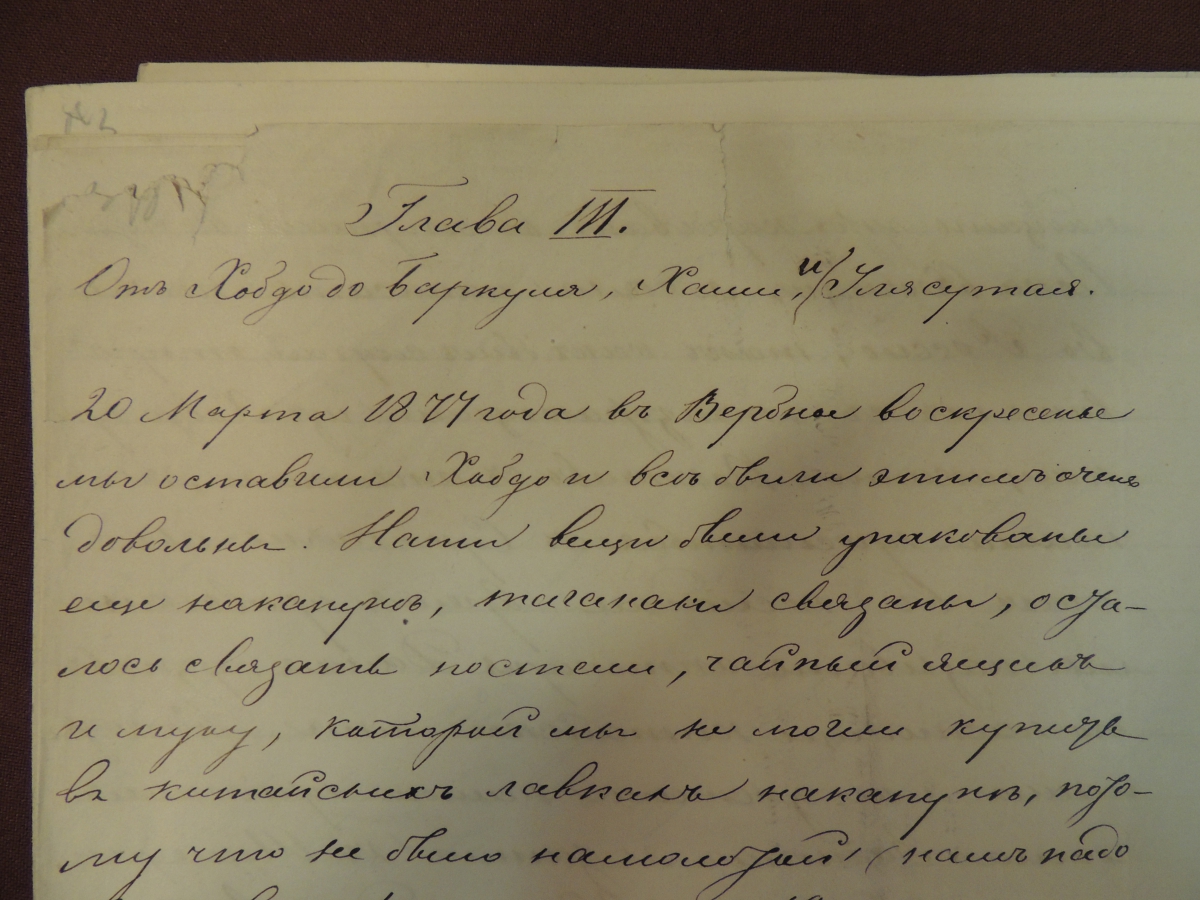 № 2
Глава III.
Отъ Хобдо до Баркуля, Хами, и Улясутая.
20 Марта 1877 года въ Вербное воскресенье
мы оставили Хобдо и всѣ были этимъ очень
довольны. Наши вещи были упакованы
еще наканунѣ, таганами связаны, оста-
лось связать постели, чайный ящикъ
и муку, которой мы не могли купить
въ китайскихъ лавкахъ наканунѣ, пото-
му что не было намолотой (намъ надо